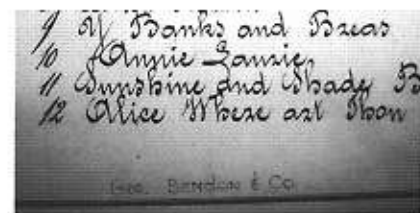 9 Y Banks and Braes
10 Annie Laurie
11 Sunshine and Shade B
12 Alice Where art Thou
Geo. Bendon & Co.